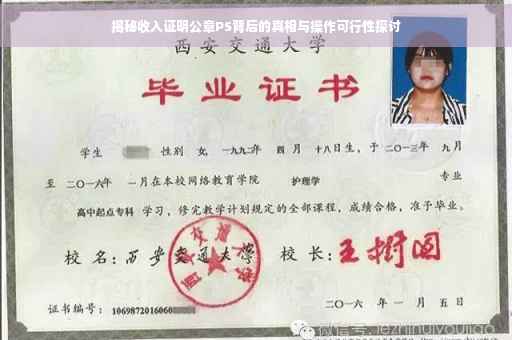 揭秘收入证明公章PS背后的真相与操作可行性探讨
西安交通大学
毕业证书
学生 性别 女, 一九九二年 四月 十八日生, 于 二〇一三年 九月
至 二〇一六年 一月在本校网络教育学院 护理学 专业
高中起点专科 学习, 修完教学计划规定的全部课程, 成绩合格, 准予毕业。
校名: 西安交通大学 校长: 王树国
西安交通大学
证书编号: 1069872016060
二〇一六年 一月 五日
微信号: jezhihuiyoujiao